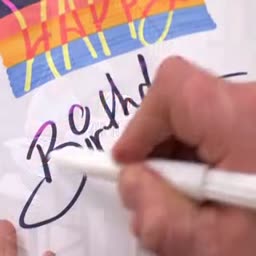 HAPPY
Birthd